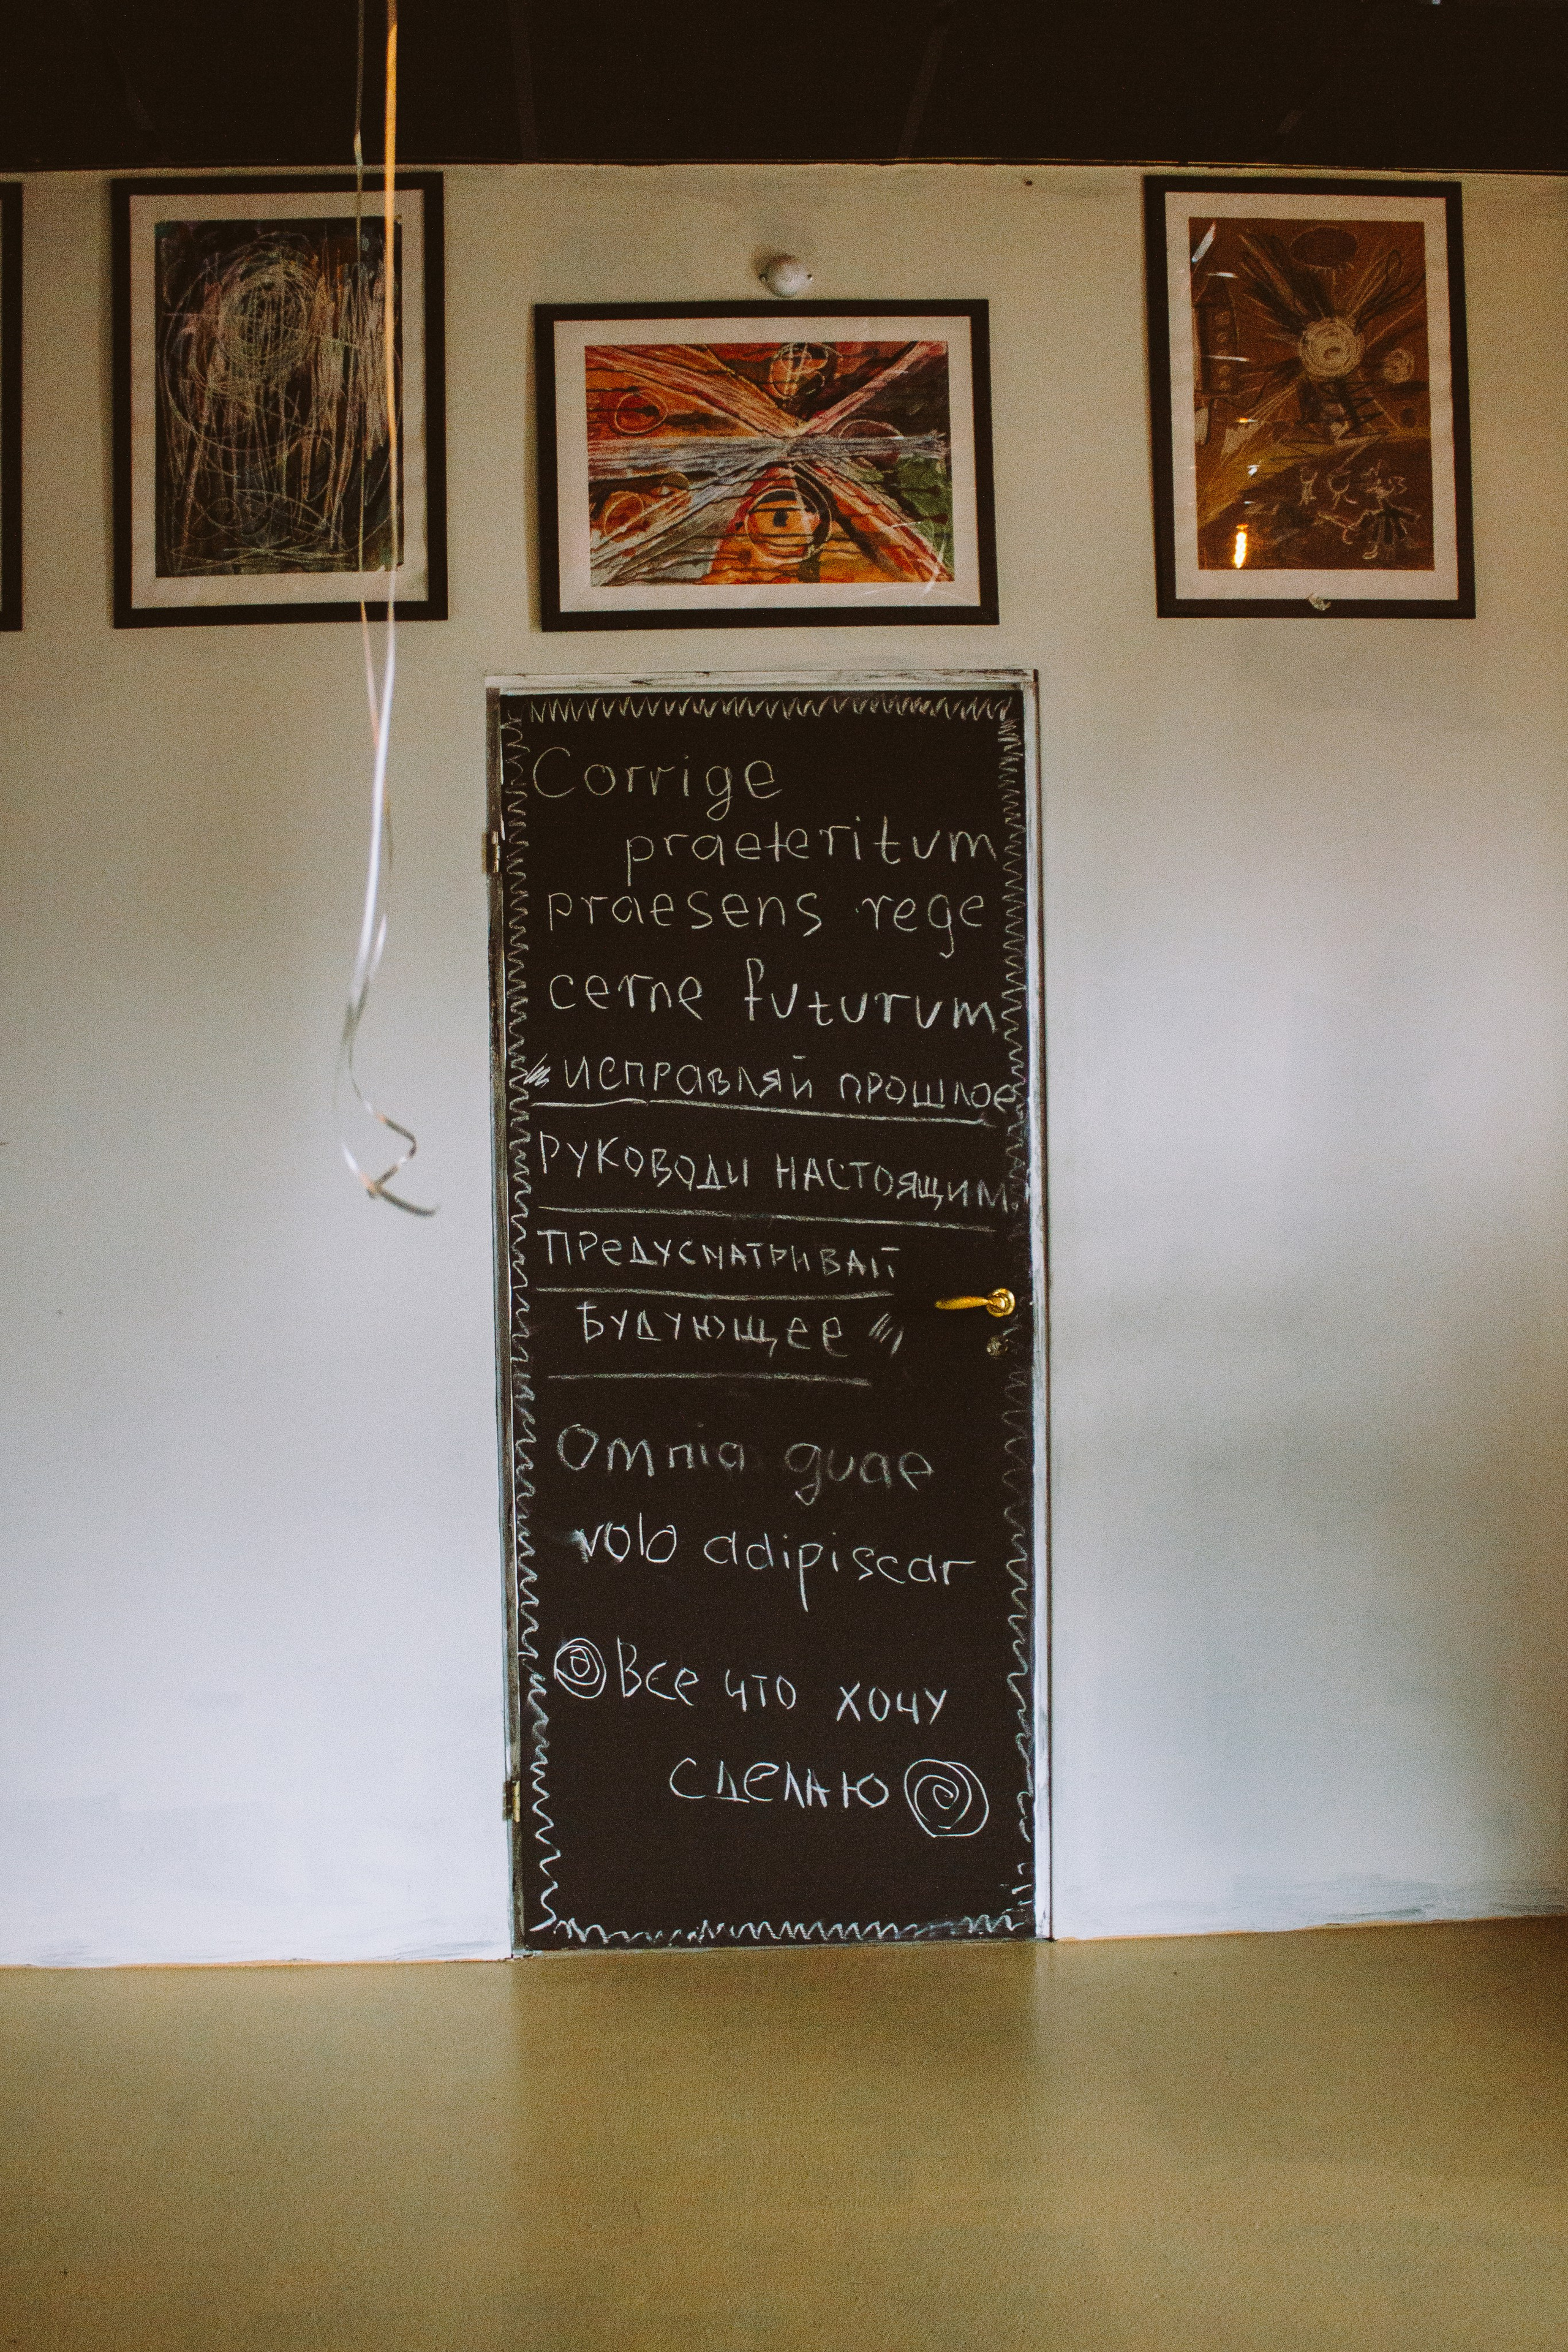 Corrige
praeteritum
praesens rege
cerne futurum
"исправляй прошлое
РУКОВОДИ НАСТОЯЩИМ
ПРеДУСМАТРИВАЙ
БУДУЮЩЕЕ"
Omnia quae
volo adipiscar
Все что хочу
сделаю